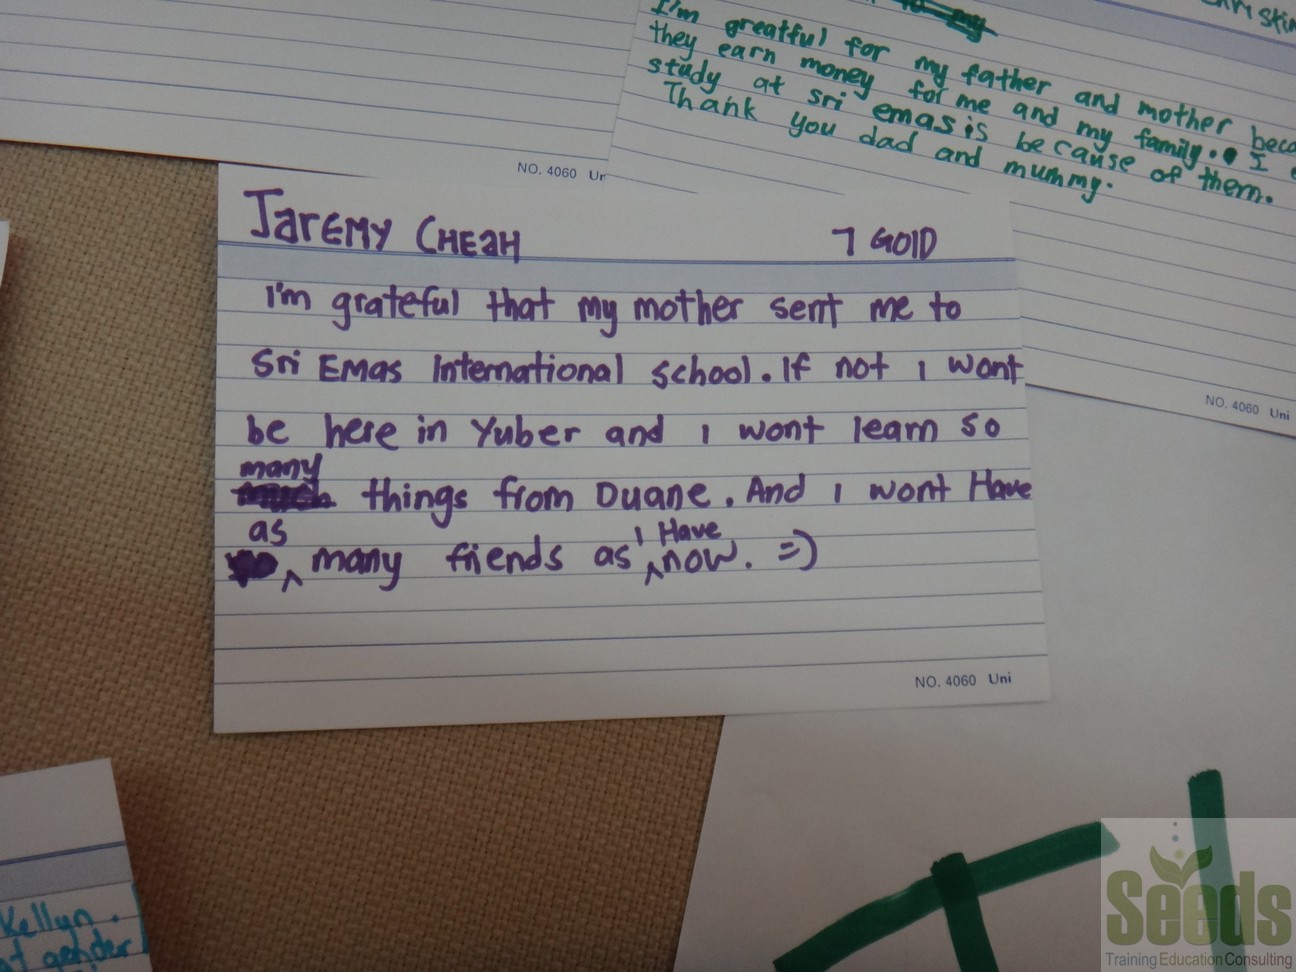 I'm greatful for my father and mother
they earn money for me and my family. I
study at sri emas is because of them.
Thank you dad and mummy.
NO. 4060
NO. 4060 Uni
JarEMY CHEaH 7 GOlD
I'm grateful that my mother sent me to
Sri Emas International school. If not I wont
be here in Yuber and I wont learn so
many things from Duane. And I wont Have
as many fiends as I Have now. =)
NO. 4060 Uni
Kellyn.
gender
Seeds
Training Education Consulting